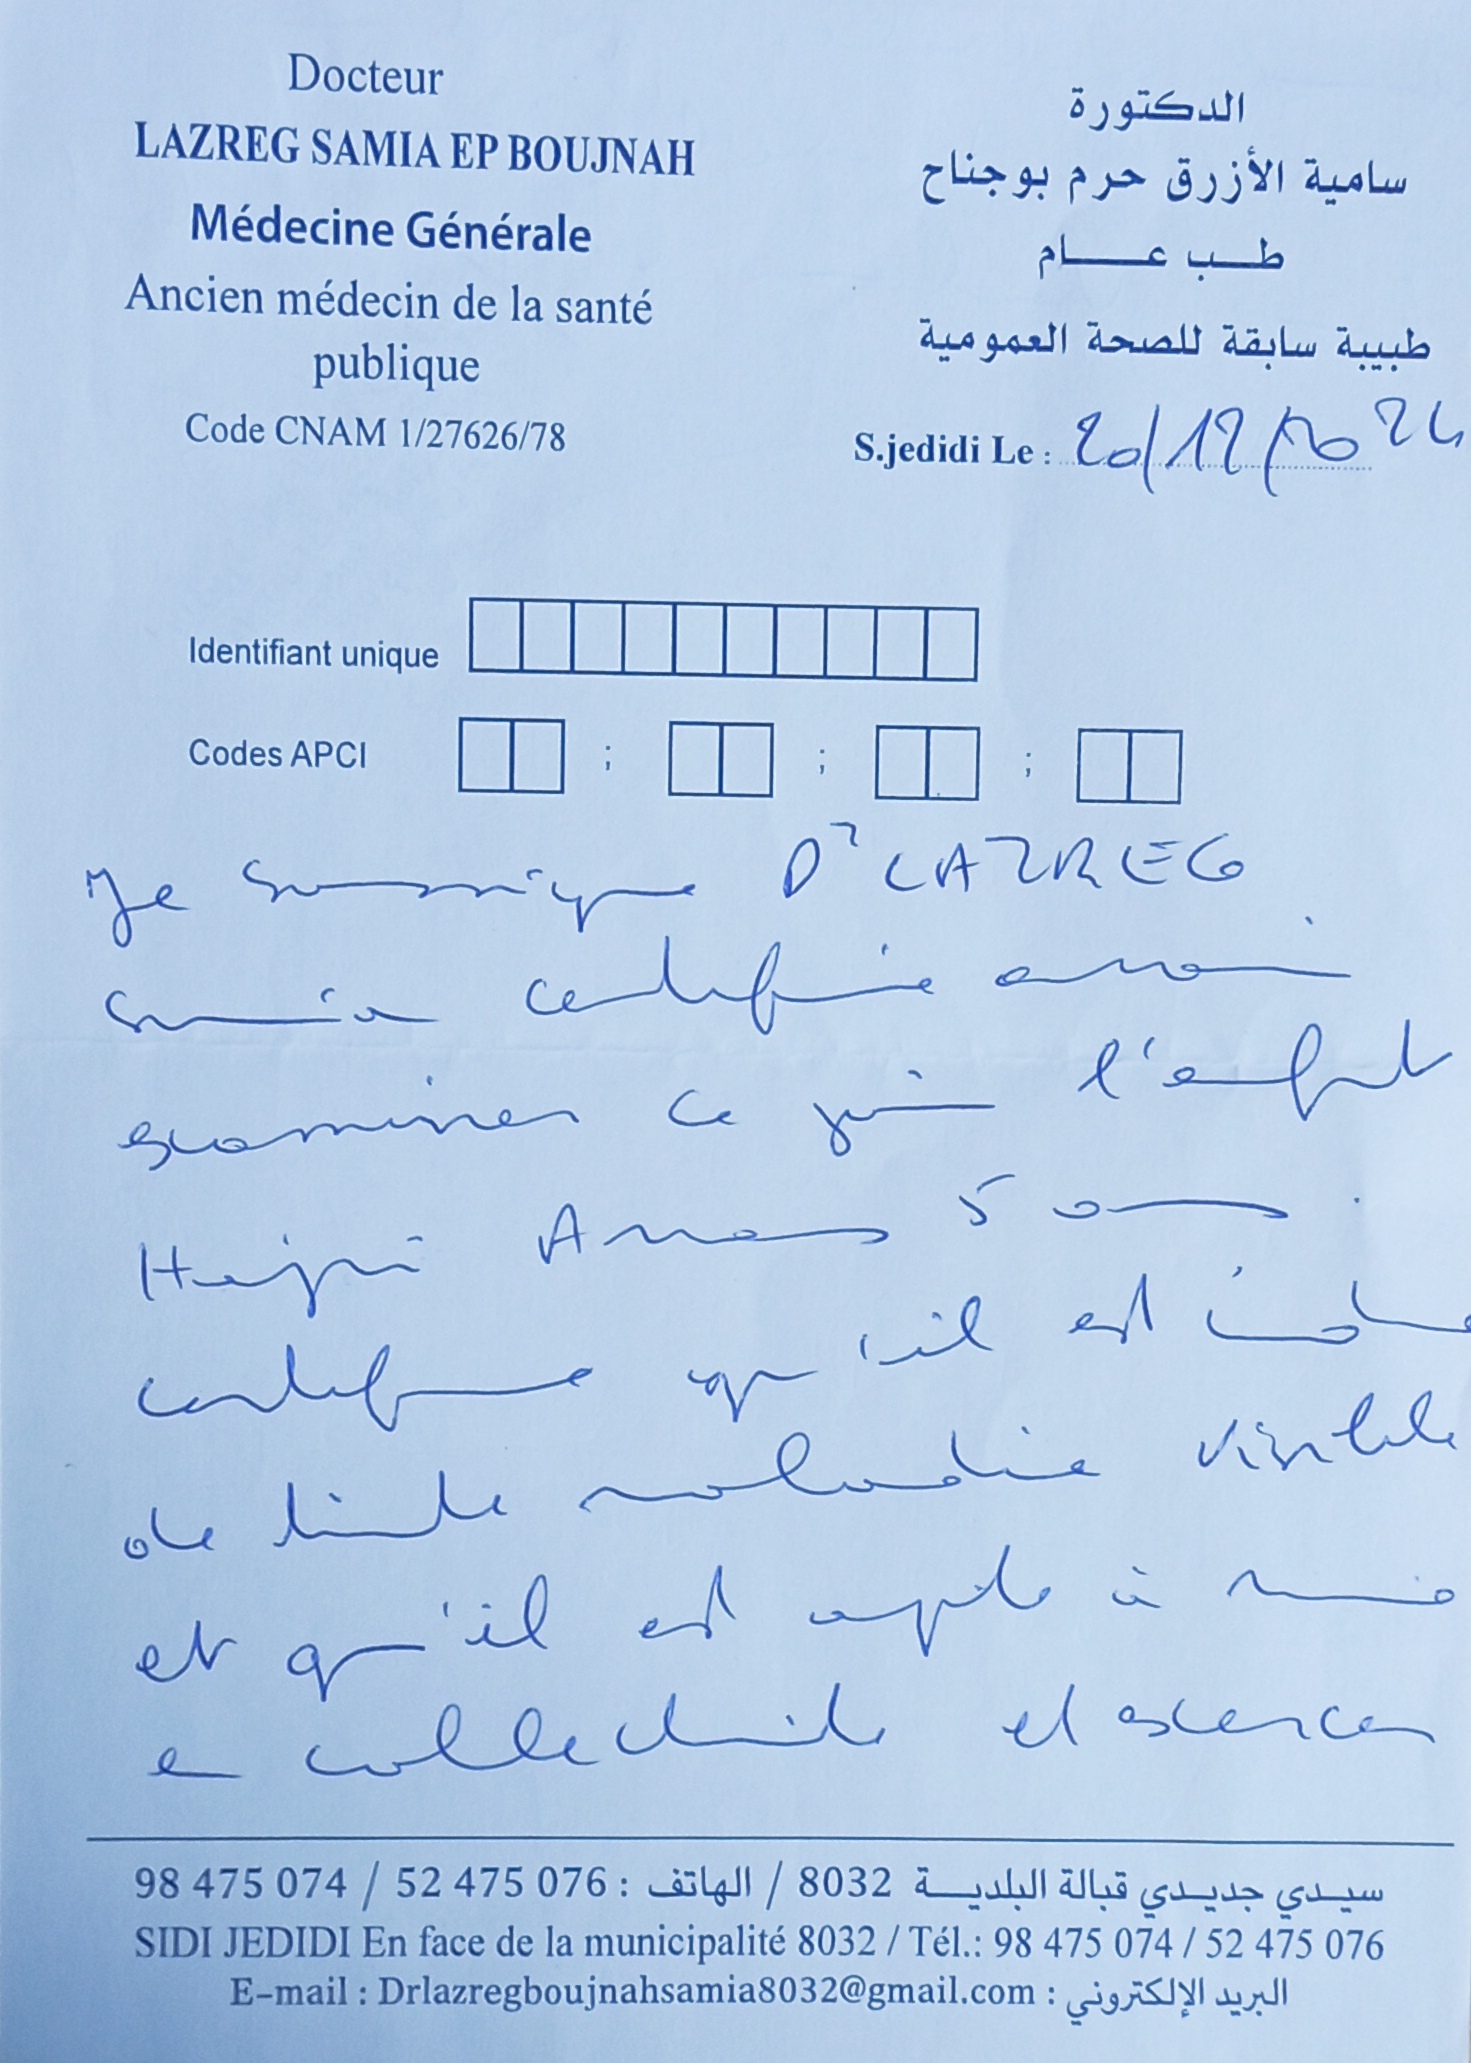 Docteur
LAZREG SAMIA EP BOUJNAH
Médecine Générale
Ancien médecin de la santé
publique
Code CNAM 1/27626/78
الدكتورة
سامية الأزرق حرم بوجناح
طب عام
طبيبة سابقة للصحة العمومية
S.jedidi Le : 20/12/2024
Identifiant unique
Codes APCI ; ; ;
Je soussigné Dr LAZREG
Samia certifie avoir
examiner ce jour l'enfant
Hejri Anas 5 ans
certifie qu'il est indemne
de toute maladie visible
et qu'il est apte à vivre
en collectivité et exercer
سيدي جديدي قبالة البلدية 8032 / الهاتف : 98 475 074 / 52 475 076
SIDI JEDIDI En face de la municipalité 8032 / Tél.: 98 475 074 / 52 475 076
E-mail : Drlazregboujnahsamia8032@gmail.com : البريد الإلكتروني